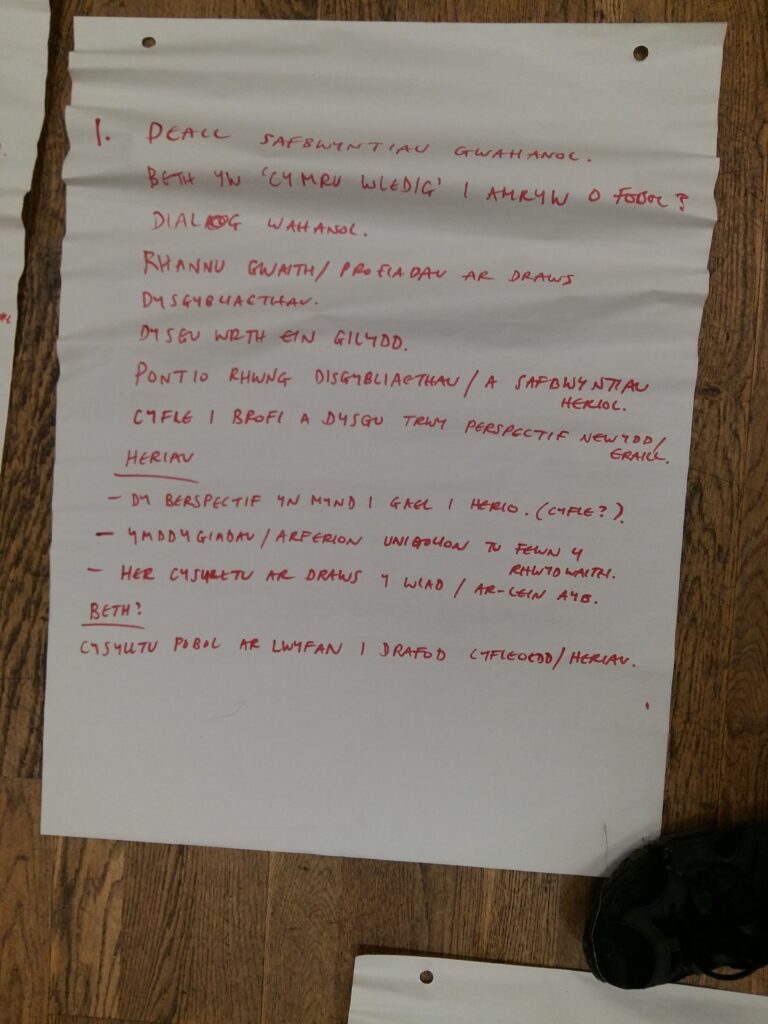 1. DEALL SAFBWYNTIAU GWAHANOL.
BETH YW 'CYMRU WLEDIG' I AMRYW O FOBOL?
DIALOG WAHANOL.
RHANNU GWAITH/PROFIADAU AR DRAWS
DYSGYBLIAETHAU.
DYSGU WRTH EIN GILYDD.
PONTIO RHWNG DISGYBLIAETHAU/A SAFBWYNTIAU
HERIOL.
CYFLE I BROFI A DYSGU TRWY PERSPECTIF NEWYDD/
ERAILL.
HERIAU
- DY BERSPECTIF YN MYND I GAEL I HERIO. (CYFLE?).
- YMDDYGIADAU/ARFERION UNIGOLION TU FEWN Y
RHWYDWAITH.
- HER CYSYLLTU AR DRAWS Y WLAD/AR-LEIN AYB.
BETH?
CYSYLLTU POBOL AR LWYFAN I DRAFOD CYFLEOEDD/HERIAU.